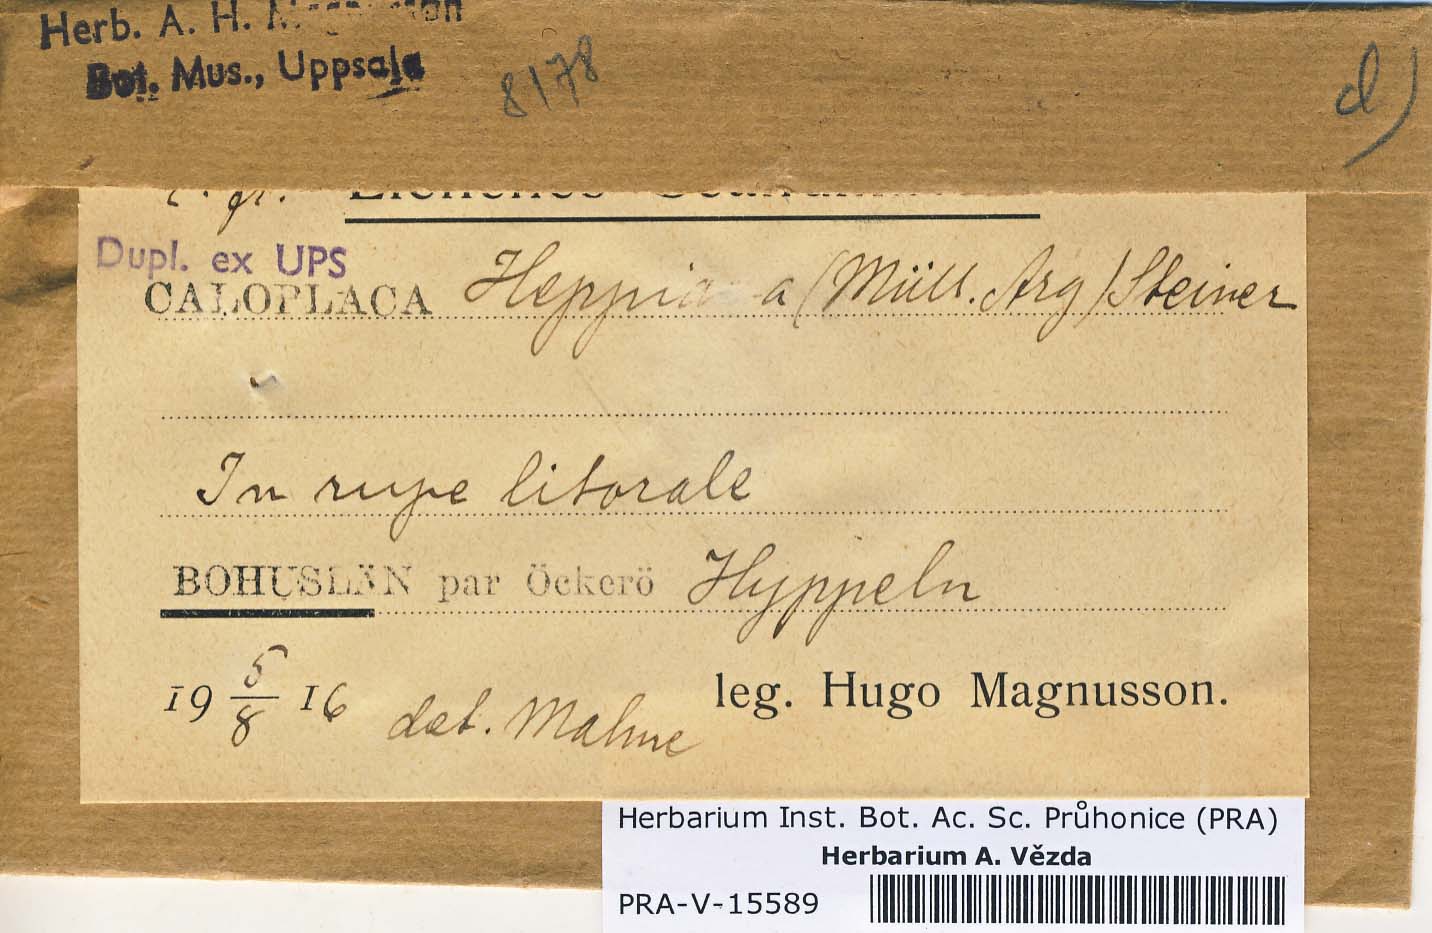 Herb. A. H.
Bot. Mus., Uppsala
8178
d)
Dupl. ex UPS
CALOPLACA Heppia a (Müll. Arg) Steiner
In rupe litorale
BOHUSLÄN par Öckerö Hyppeln
19 5/8 16 det. Malme leg. Hugo Magnusson.
Herbarium Inst. Bot. Ac. Sc. Průhonice (PRA)
Herbarium A. Vězda
PRA-V-15589